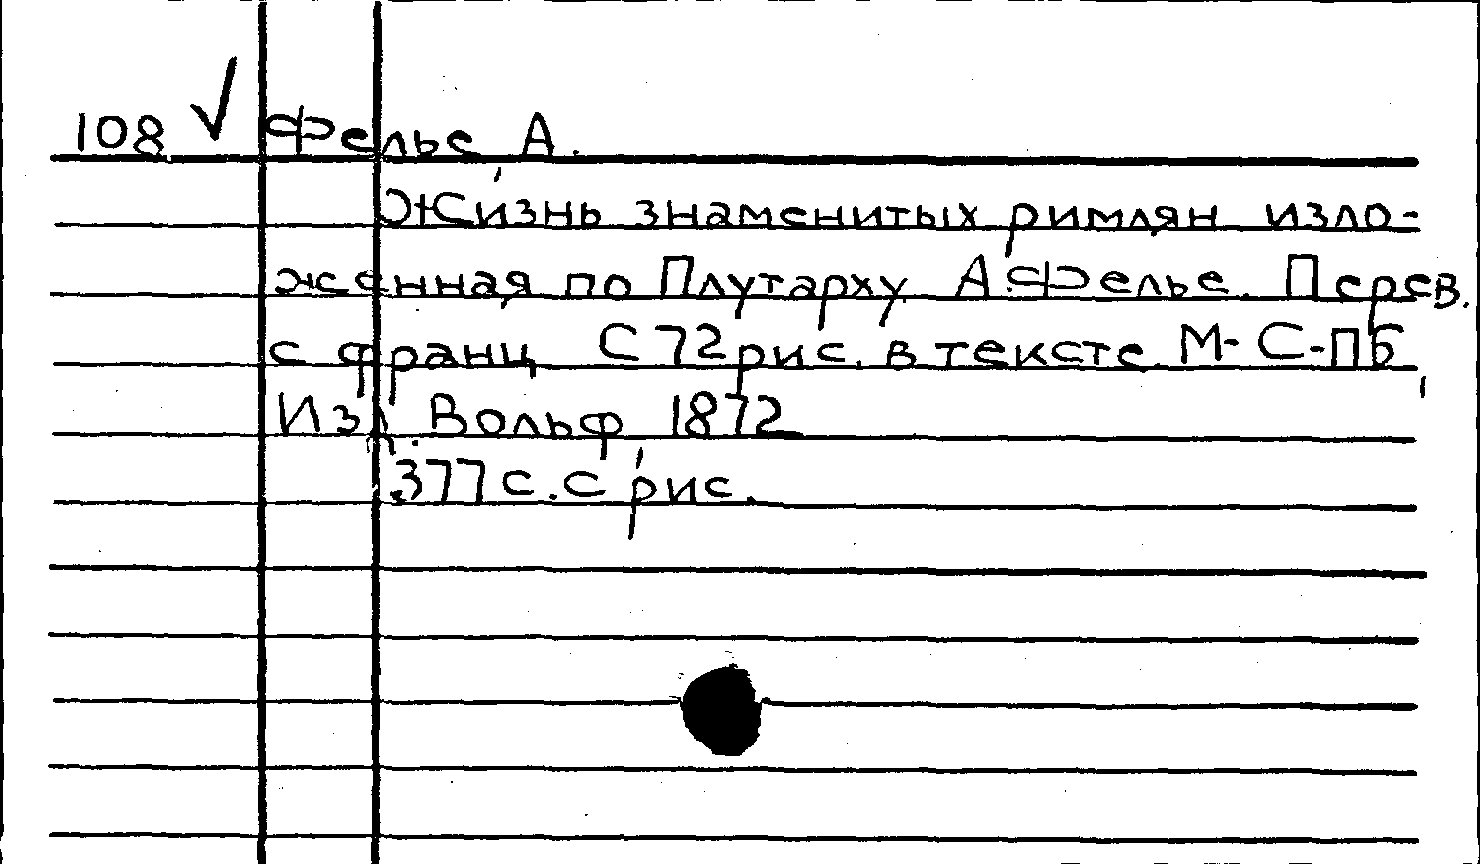 108 √ Фелье А.
Жизнь знаменитых римлян изло-
женная по Плутарху А Фелье. Перев.
с франц С 72 рис. в тексте М-С-ПБ,
Изд. Вольф, 1872
377 с. с рис.